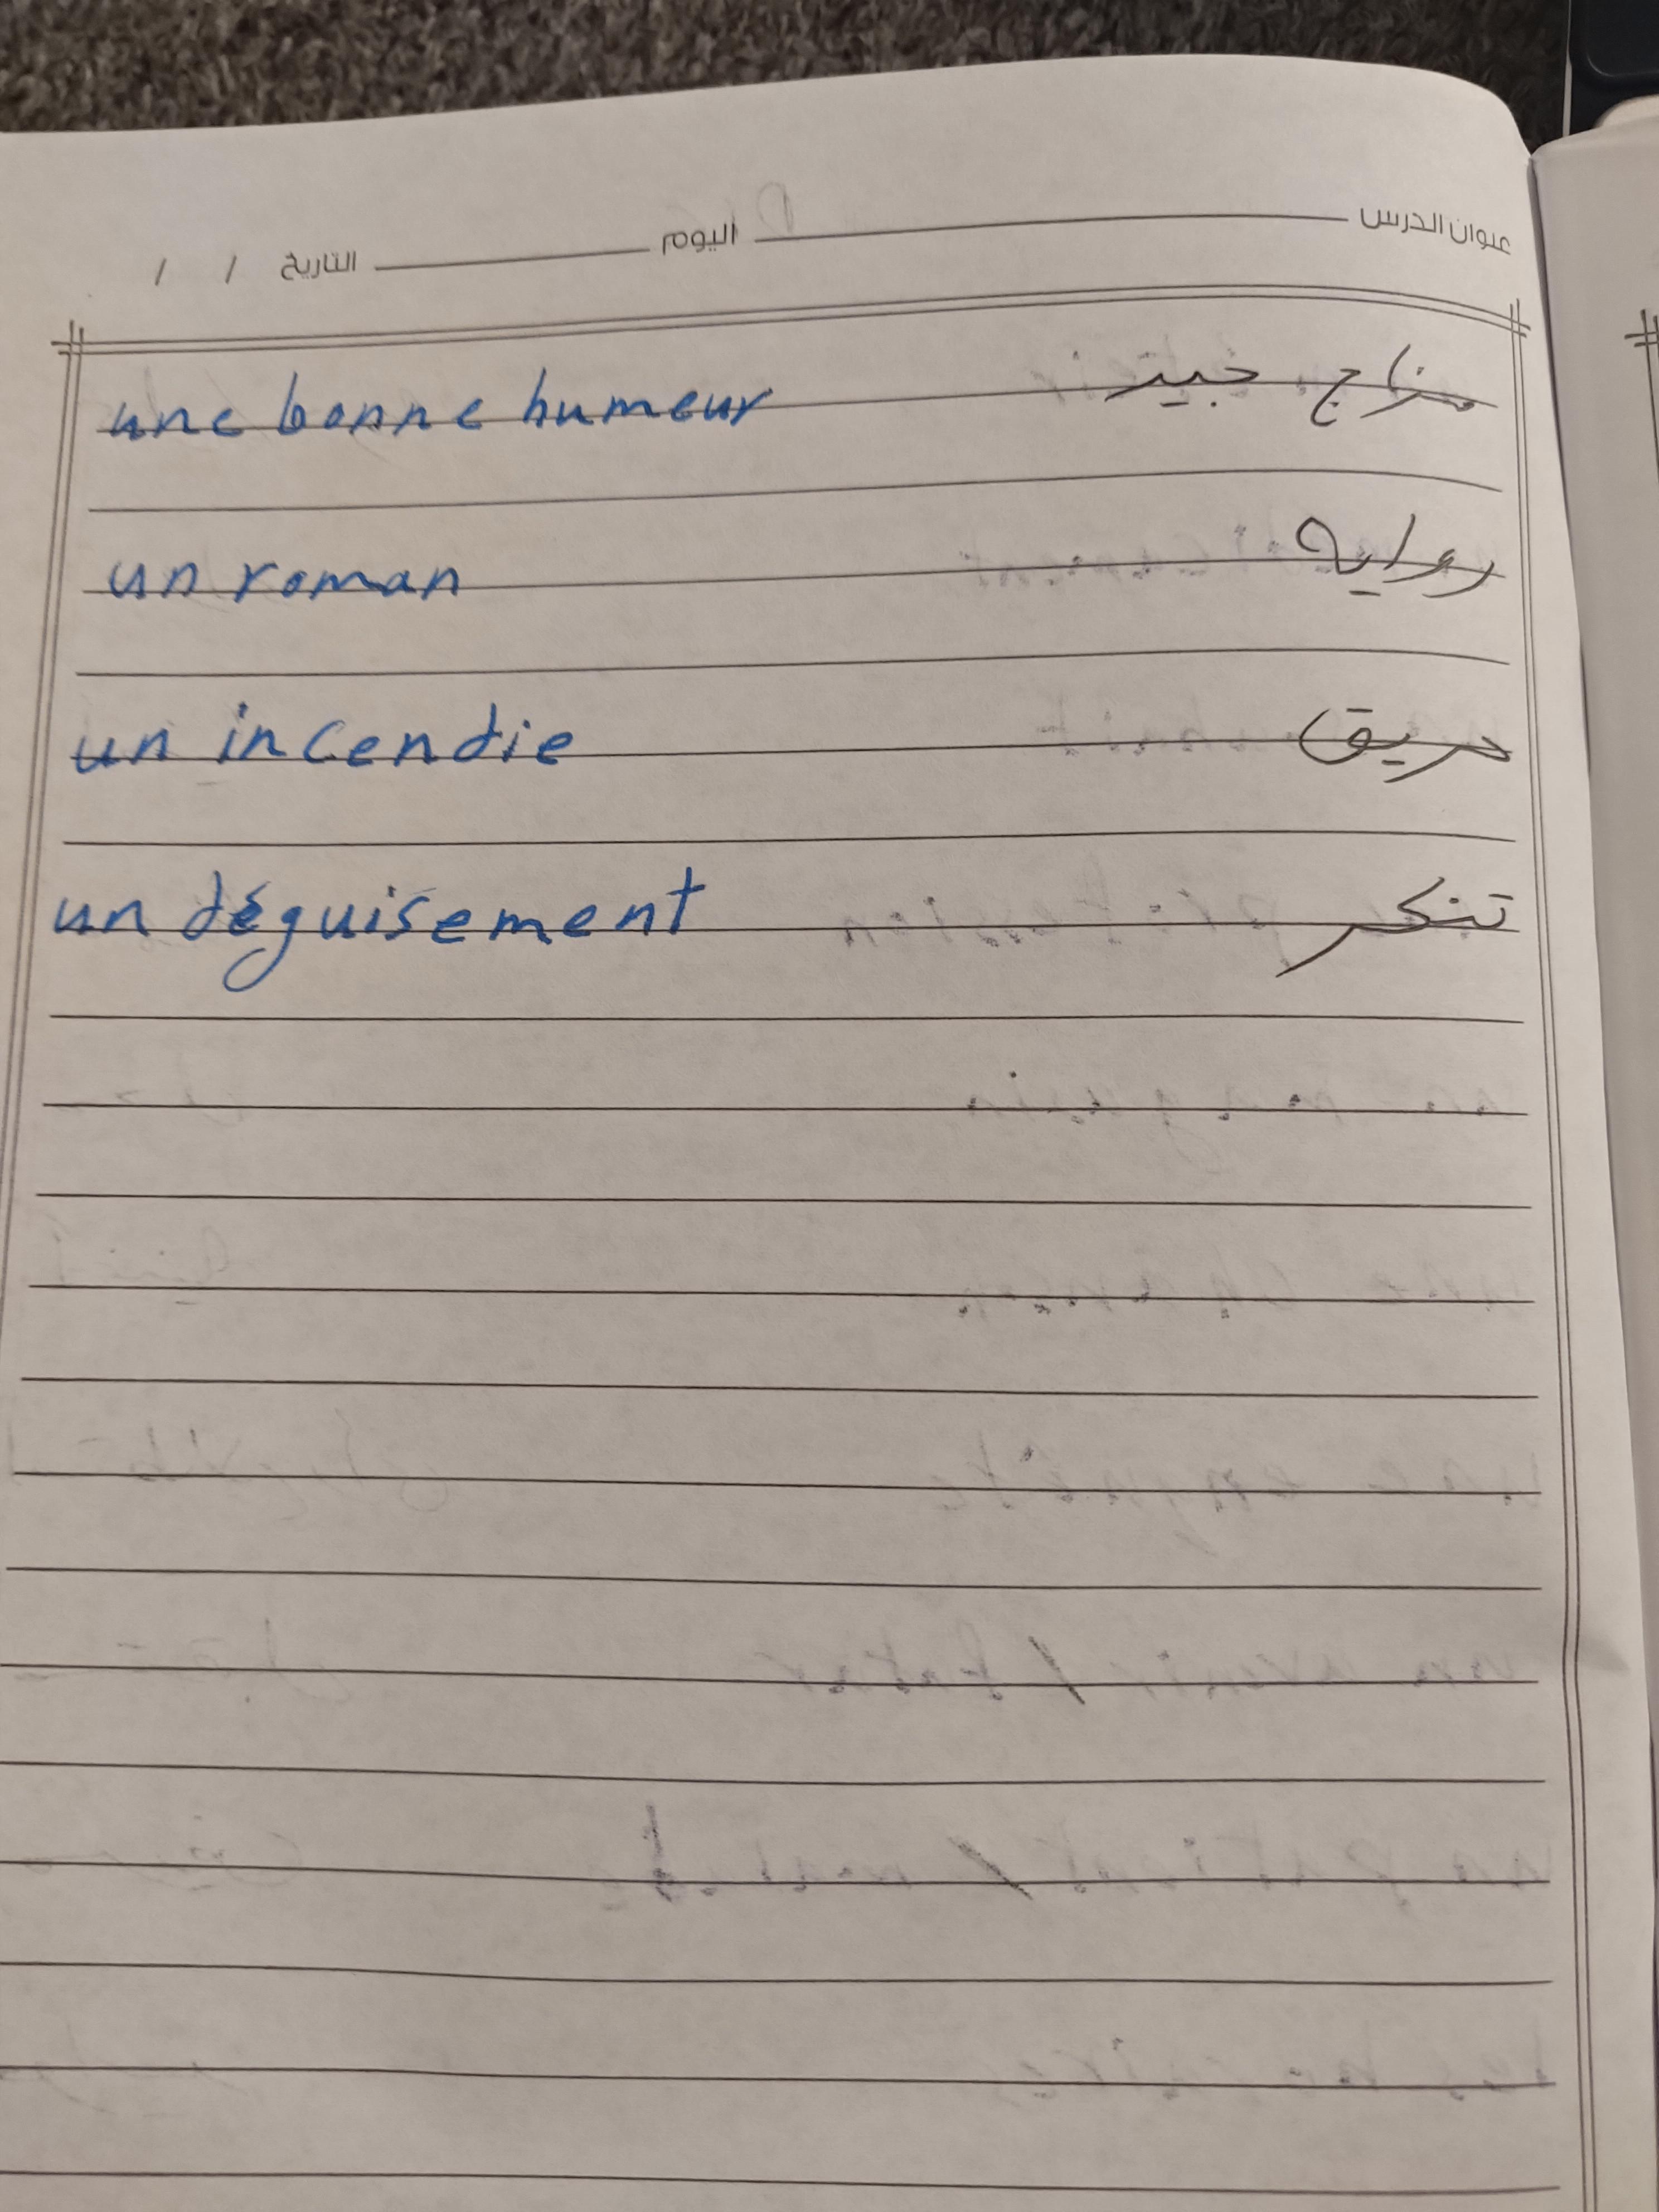 عنوان الدرس اليوم التاريخ / /
une bonne humeur مزاج جيد
un roman روايه
un incendie حريق
un déguisement تنكر